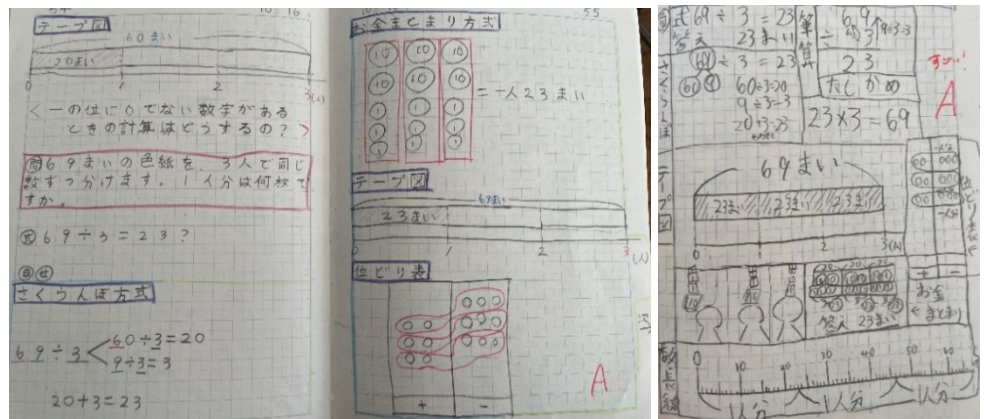 テープ図
60まい
20まい
0 1 2 3(人)
<一の位に0でない数字がある
ときの計算はどうするの?>
問69まいの色紙を、3人で同じ
数ずつ分けます。1人分は何枚で
すか。
式69÷3=23?
さくらんぼ方式
69÷3
60÷3=20
9÷3=3
20+3=23
55
お金まとまり方式
10 10 10
10 10 10
1 1 1
1 1 1
1 1 1
=一人23まい
テープ図
69まい
23まい
0 1 2 3(人)
位どり表
十 一
A
式69÷3=23
答え 23まい
69÷3=23
60 9
60÷3=20
9÷3=3
20+3=23
筆算
69
÷ 3
23
たしかめ
23×3=69
すごい!
A
テープ図
69まい
23まい 23まい 23まい
0 1 2 3(人)
位どり表
一人分
十 一
お金
まとまり
答え 23まい
数直線
0 10 20 30 40 50 60
1人分 1人分 1人分